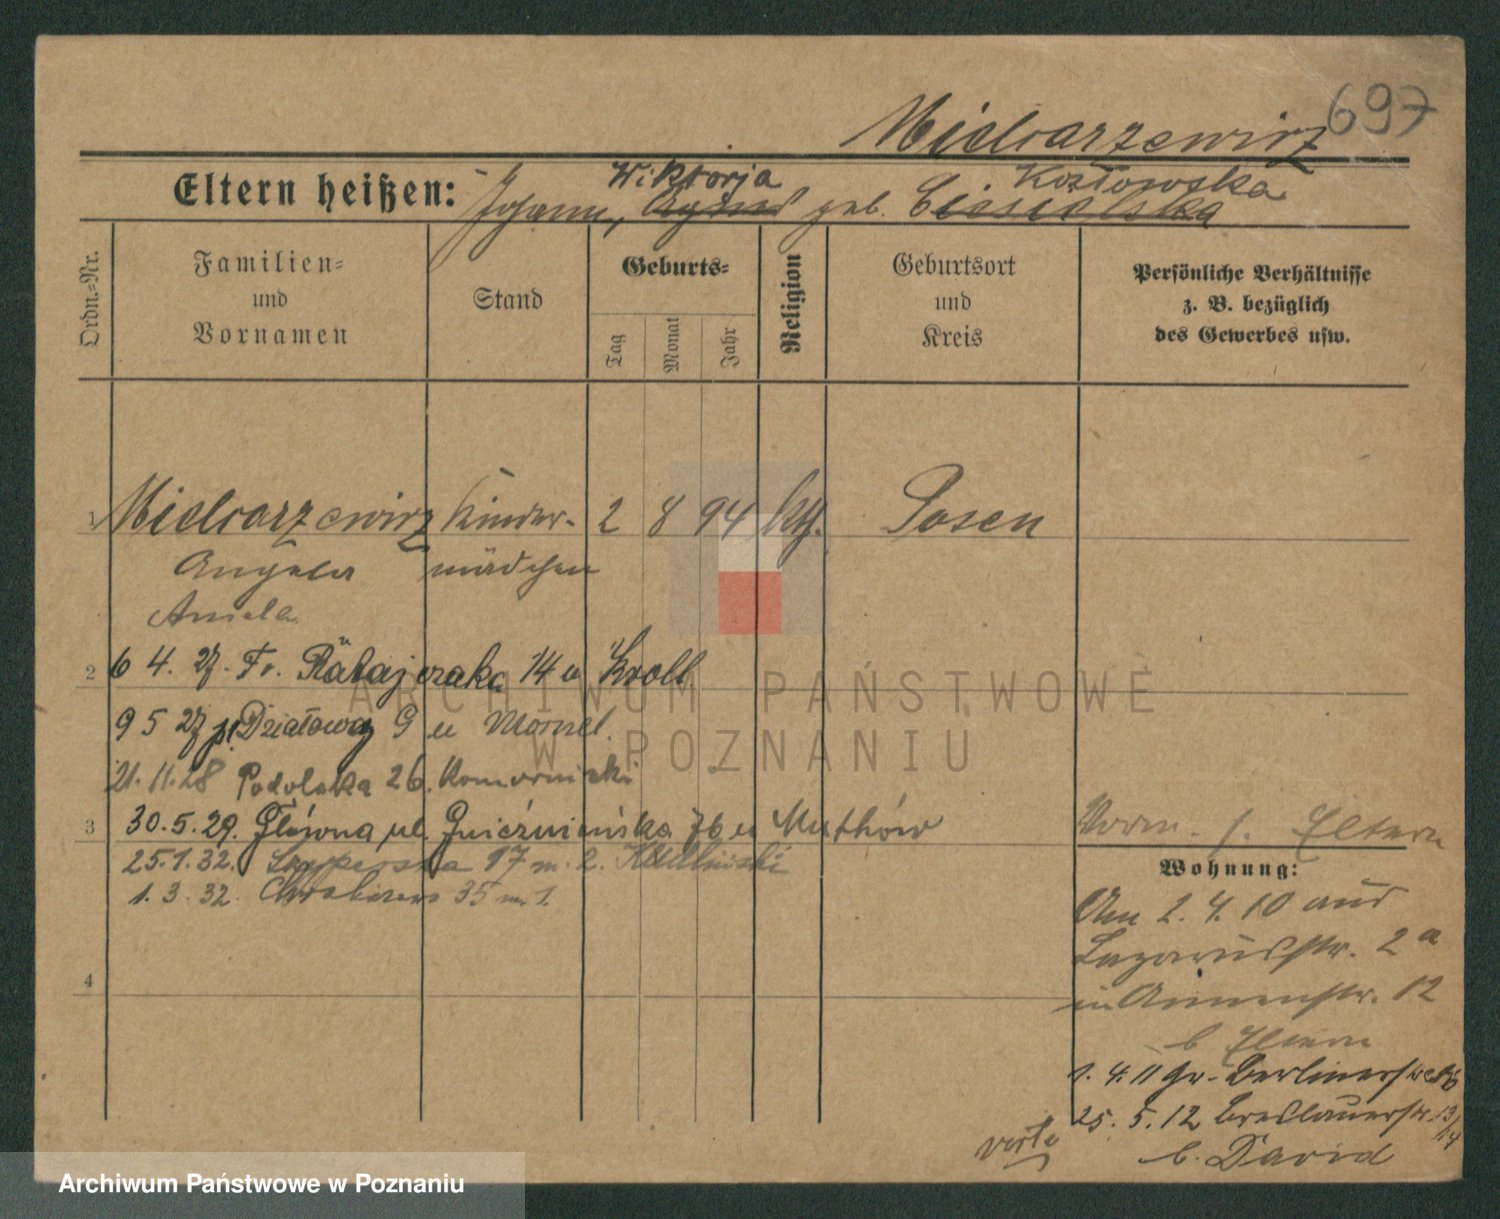 697
Mielcarzewicz
Eltern heißen: Johann, Wiktorja geb. Kozłowska
Ordn.-Nr.
Familien-
und
Vornamen
Stand
Geburts-
Tag
Monat
Jahr
Religion
Geburtsort
und
Kreis
Persönliche Verhältnisse
z. B. bezüglich
des Gewerbes usw.
1 Mielcarzewicz Kinder- 2 8 94 kth. Posen
Angela mädchen
Aniela
2 6 4. 27. Fr. Ratajczaka 14 u Kroll
9 5 27 pl. Działowy 9 u
21.11.28 Podolska 26. Komornicki
3 30.5.29. Główna ul. Gnieźnieńska 76 u
25.1.32. 17 m. 2.
1.3.32. 35 m. 1.
4
Vorm. s. Eltern
Wohnung:
Am 2.4.10 aus
Lazarusstr. 2a
in Annenstr. 12
b Eltern
1.4.11 Gr. Berlinerstr.
25.5.12 Breslauerstr. 13/14
b. David
verte
ARCHIWUM PAŃSTWOWE
W POZNANIU
Archiwum Państwowe w Poznaniu